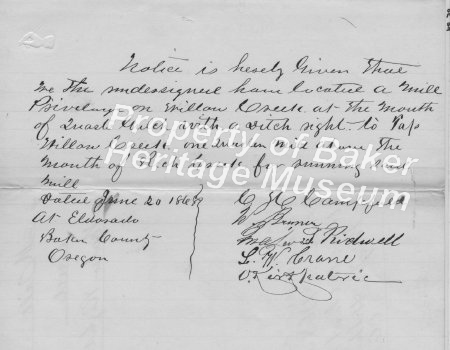 Notice is hereby Given that
We the undersigned have located a Mill
Privelage on Willow Creek at the Mouth
of Quartz Gulch with a ditch right to Tap
Willow Creek one mile the
Mouth of for running said
Mill
Dated June 20 1868
At Eldorado
Baker County
Oregon
Campfield
Kidwell
L. W. Crane
Kirkpatric
Property of Baker
Heritage Museum